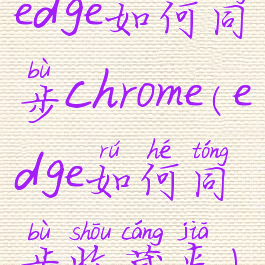 edge如何同
bù
步chrome(e
rú hé tóng
dge如何同
bù shōu cáng jiā
步收藏夹)